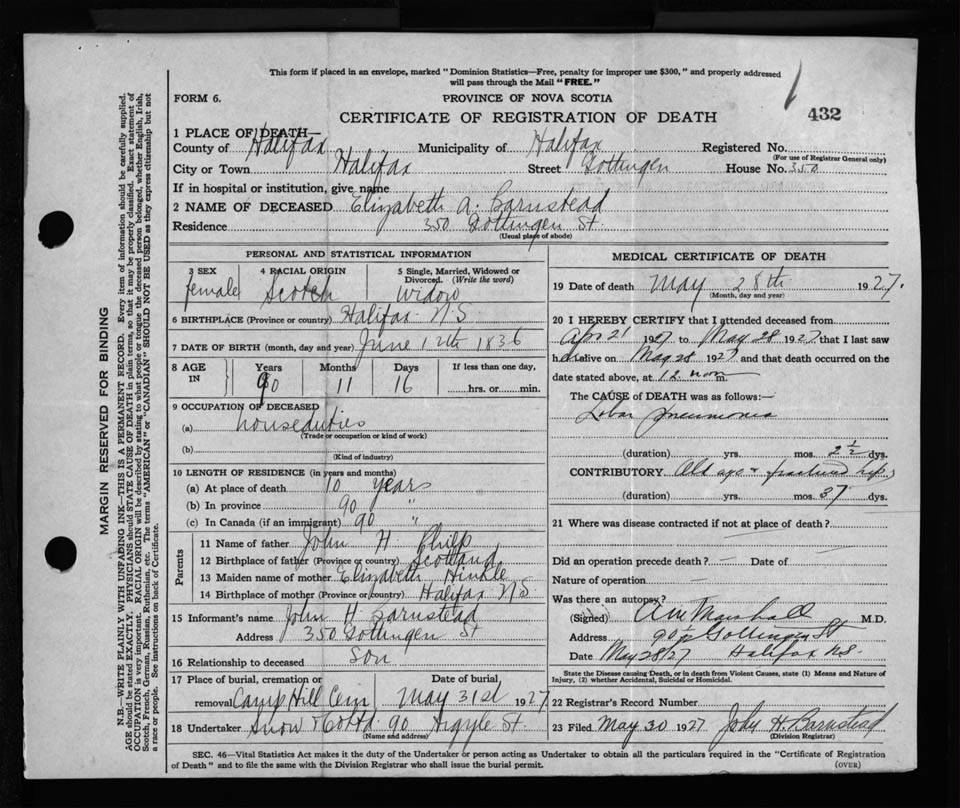 This form if placed in an envelope, marked "Dominion Statistics—Free, penalty for improper use $300," and properly addressed
will pass through the Mail "FREE."
FORM 6.
PROVINCE OF NOVA SCOTIA
432
CERTIFICATE OF REGISTRATION OF DEATH
1 PLACE OF DEATH—
County of Halifax Municipality of Halifax Registered No.
(For use of Registrar General only)
City or Town Halifax Street Gottingen House No. 350
If in hospital or institution, give name
2 NAME OF DECEASED Elizabeth A. Barnstead
Residence 350 Gottingen St.
(Usual place of abode)
PERSONAL AND STATISTICAL INFORMATION
3 SEX 4 RACIAL ORIGIN 5 Single, Married, Widowed or
Divorced. (Write the word)
female Scotch Widow
6 BIRTHPLACE (Province or country) Halifax N.S.
7 DATE OF BIRTH (month, day and year) June 12th 1836
8 AGE IN Years Months Days If less than one day,
90 11 16 hrs. or min.
9 OCCUPATION OF DECEASED
(a) house duties
(Trade or occupation or kind of work)
(b)
(Kind of industry)
10 LENGTH OF RESIDENCE (in years and months)
(a) At place of death 10 years
(b) In province 90 "
(c) In Canada (if an immigrant) 90 "
Parents
11 Name of father John H. Philp
12 Birthplace of father (Province or country) Scotland
13 Maiden name of mother Elizabeth Hinkle
14 Birthplace of mother (Province or country) Halifax N.S.
15 Informant's name John H Barnstead
Address 350 Gottingen St
16 Relationship to deceased Son
17 Place of burial, cremation or Date of burial,
removal Camp Hill Cem May 31st 1927
18 Undertaker Snow & Co Ltd. 90 Argyle St.
(Name and address)
MEDICAL CERTIFICATE OF DEATH
19 Date of death May 28th 1927.
(Month, day and year)
20 I HEREBY CERTIFY that I attended deceased from
Apr 21 1927 to May 28 1927 that I last saw
her alive on May 28 1927 and that death occurred on the
date stated above, at 12 noon m.
The CAUSE of DEATH was as follows:—
Lobar pneumonia
(duration) yrs. mos. 2½ dys.
CONTRIBUTORY Old age & fractured hip
(duration) yrs. mos. 37 dys.
21 Where was disease contracted if not at place of death?
Did an operation precede death? — Date of
Nature of operation —
Was there an autopsy?
(Signed) A M Marshall M.D.
Address 90½ Gottingen St
Date May 28/27 Halifax N.S.
State the Disease causing Death, or in death from Violent Causes, state (1) Means and Nature of
Injury, (2) whether Accidental, Suicidal or Homicidal.
22 Registrar's Record Number
23 Filed May 30 1927 John H. Barnstead
(Division Registrar)
SEC. 46—Vital Statistics Act makes it the duty of the Undertaker or person acting as Undertaker to obtain all the particulars required in the "Certificate of Registration
of Death" and to file the same with the Division Registrar who shall issue the burial permit.
(OVER)
MARGIN RESERVED FOR BINDING
N.B.—WRITE PLAINLY WITH UNFADING INK—THIS IS A PERMANENT RECORD. Every item of information should be carefully supplied.
AGE should be stated EXACTLY. PHYSICIANS should STATE CAUSE OF DEATH in plain terms, so that it may be properly classified. Exact statement of
OCCUPATION is very important. RACIAL ORIGIN will be described by stating to what people or tongue the deceased person belonged, whether English, Irish,
Scotch, French, German, Russian, Ruthenian, etc. The terms "AMERICAN" or "CANADIAN" SHOULD NOT BE USED as they express citizenship but not
a race or people. See instructions on back of Certificate.